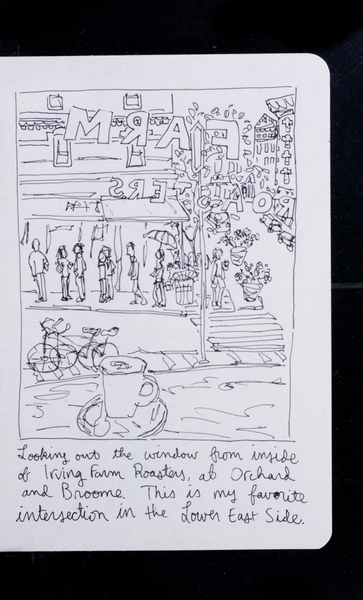 FARM
ROASTERS
Looking out the window from inside
of Irving Farm Roasters, at Orchard
and Broome. This is my favorite
intersection in the Lower East Side.